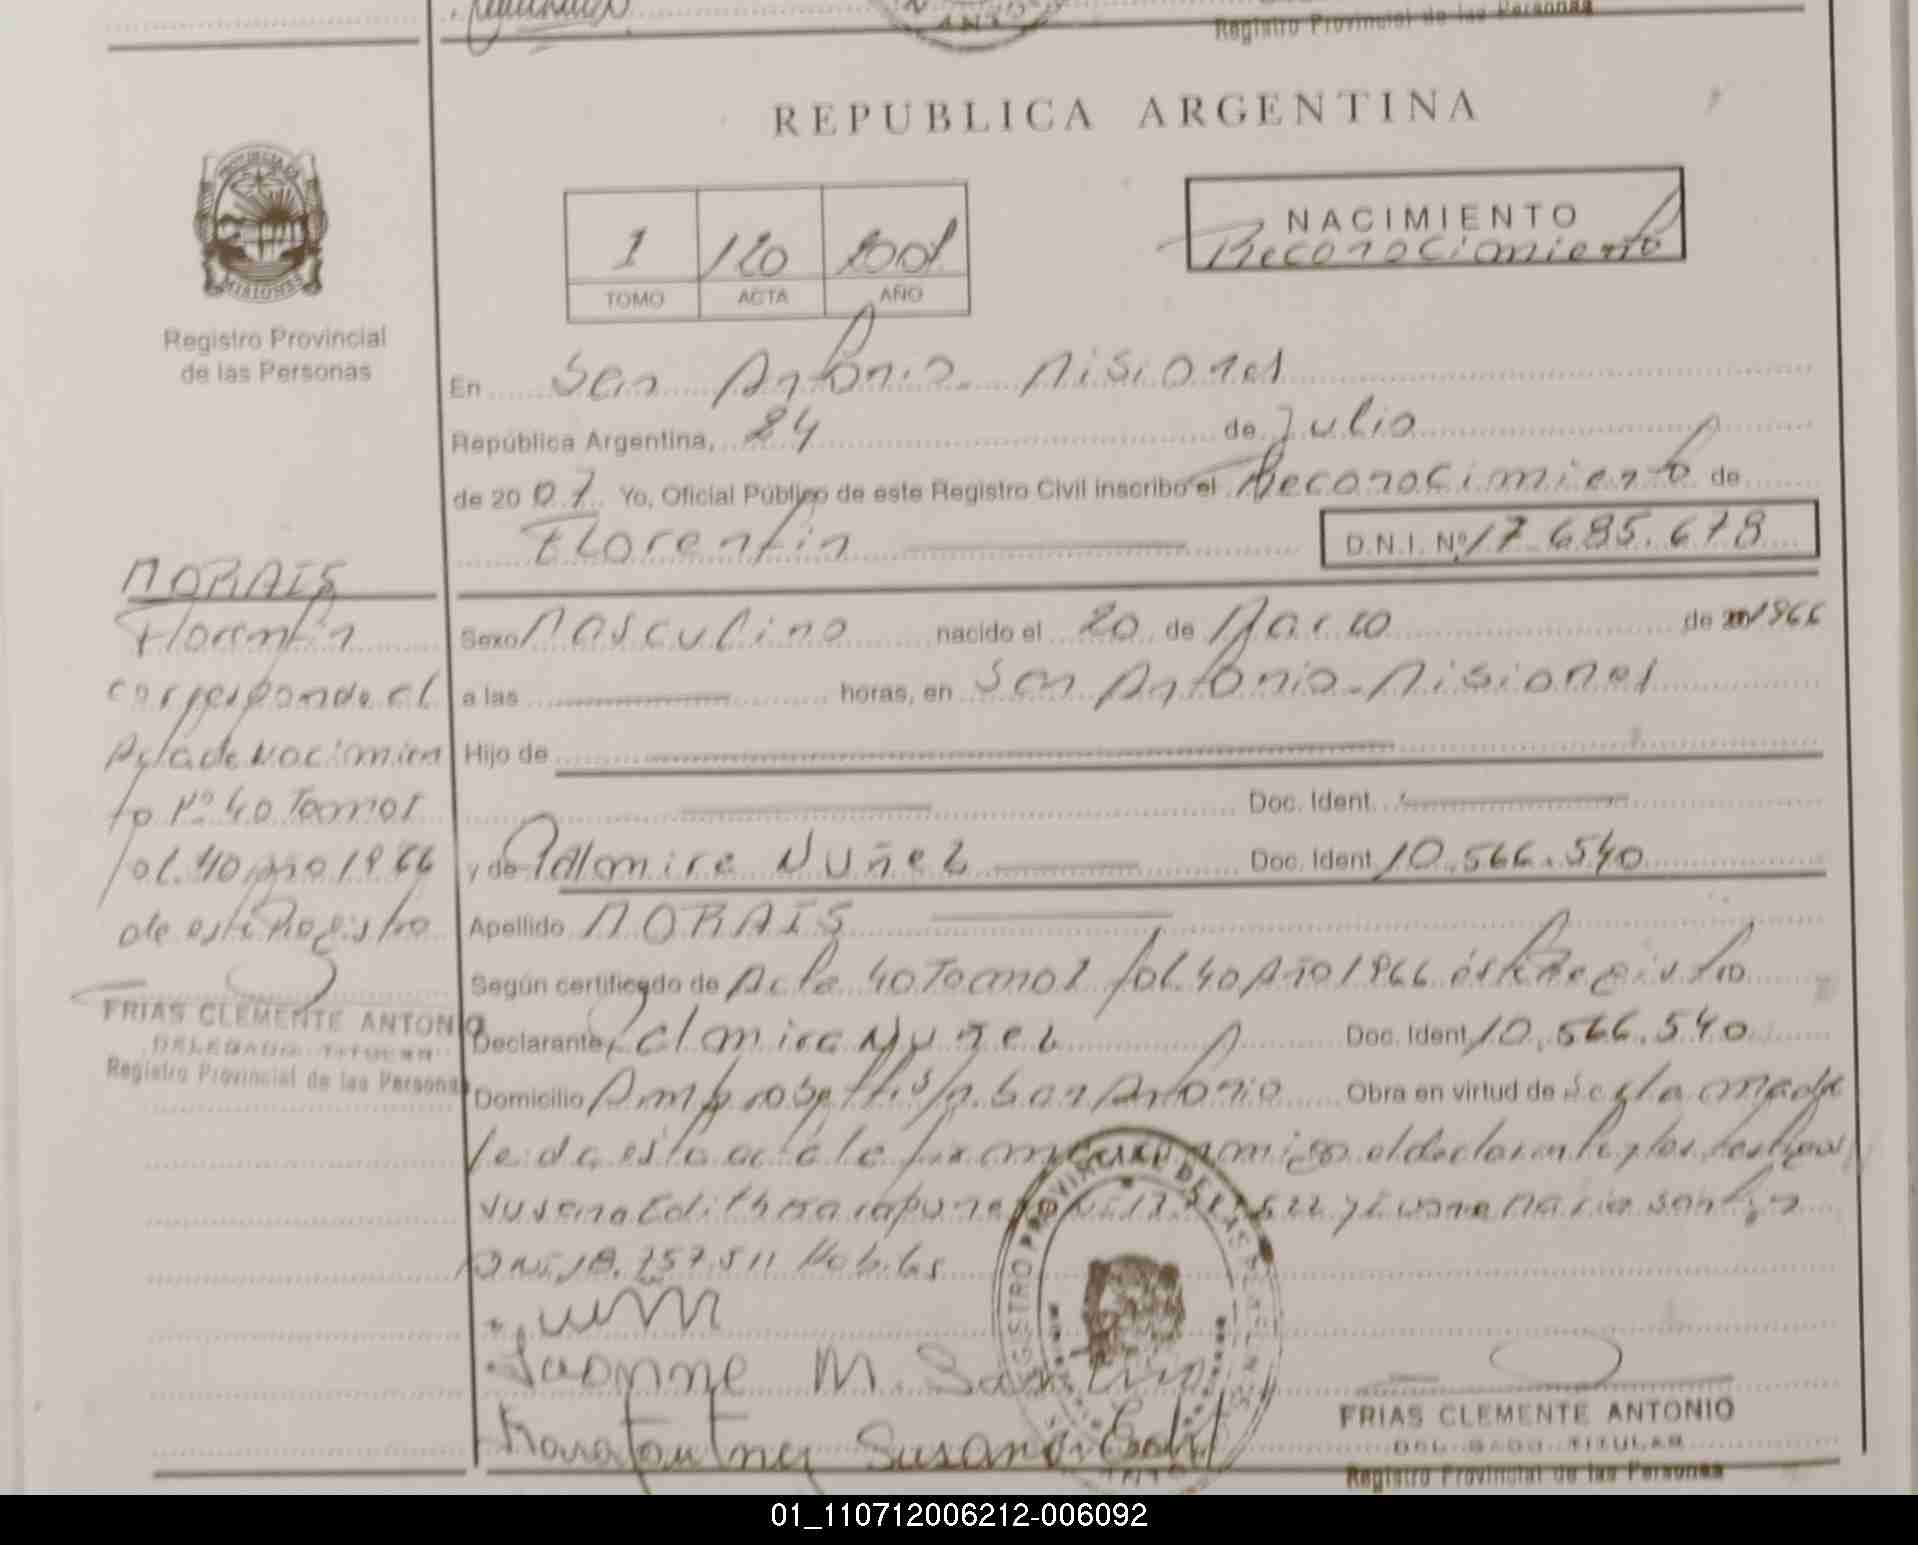 Registro Provincial de las Personas
REPUBLICA ARGENTINA
PROVINCIA DE
MISIONES
Registro Provincial
de las Personas
1 120
TOMO ACTA AÑO
NACIMIENTO
Reconocimiento
En San Antonio - Misiones
República Argentina, 24 de Julio
de 20 07 Yo, Oficial Público de este Registro Civil inscribo el Reconocimiento de
Florentin D.N.I. Nº 17.685.678
MORAIS
Florentin
corresponde al
Acta de Nacimien
to Nº 40 Tomo 1
fol. 40 año 1966
de este Registro
FRIAS CLEMENTE ANTONIO
DELEGADO TITULAR
Registro Provincial de las Personas
Sexo Masculino nacido el 20 de Marzo de 1966
a las horas, en San Antonio - Misiones
Hijo de
Doc. Ident.
y de Palmira Nuñez Doc. Ident 10.566.540
Apellido MORAIS
Según certificado de Acta 40 Tomo 1 fol. 40 Año 1966 éste Registro
Declarante Palmira Nuñez Doc. Ident 10.566.540
Domicilio San Antonio Obra en virtud de ser la madre
leida esta acta la firman conmigo el declarante y los testigos
Susana Edith DNI y Ivonne Maria
DNI 18.757.511 Habiles
REGISTRO PROVINCIAL DE LAS PERSONAS
Ivonne M.
Susana Edith
FRIAS CLEMENTE ANTONIO
DELEGADO TITULAR
Registro Provincial de las Personas
01_110712006212-006092